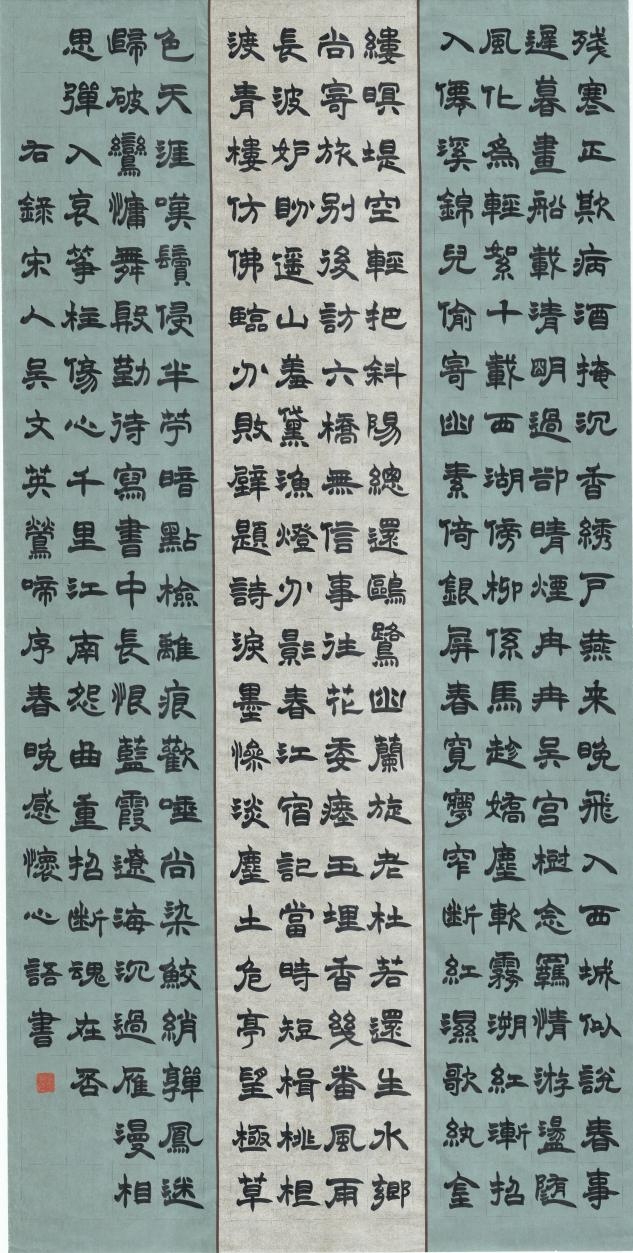 残寒正欺病酒掩沉香綉户燕来晚飛入西城似說春事
遲暮畫船載清明過卻晴煙冉冉吳宮樹念羈情游盪随
風化為輕絮十載西湖傍柳係馬趁嬌塵軟霧溯紅漸招
入僊溪錦兒偷寄幽素倚銀屏春寬夢窄断紅濕歌紈金
縷暝堤空輕把斜陽總還鷗鷺幽蘭旋老杜若還生水鄉
尚寄旅别後訪六橋無信事往花委瘞玉埋香幾番風雨
長波妒盼遥山羞黛漁燈分影春江宿記當時短楫桃根
渡青樓仿佛臨分敗壁題詩淚墨慘淡塵土危亭望極草
色天涯嘆鬢侵半苧暗點檢離痕歡唾尚染鮫綃嚲鳳迷
歸破鸞慵舞殷勤待寫書中長恨藍霞遼海沉過雁漫相
思彈入哀箏柱傷心千里江南怨曲重招断魂在否
右錄宋人吳文英鶯啼序春晚感懷心語書